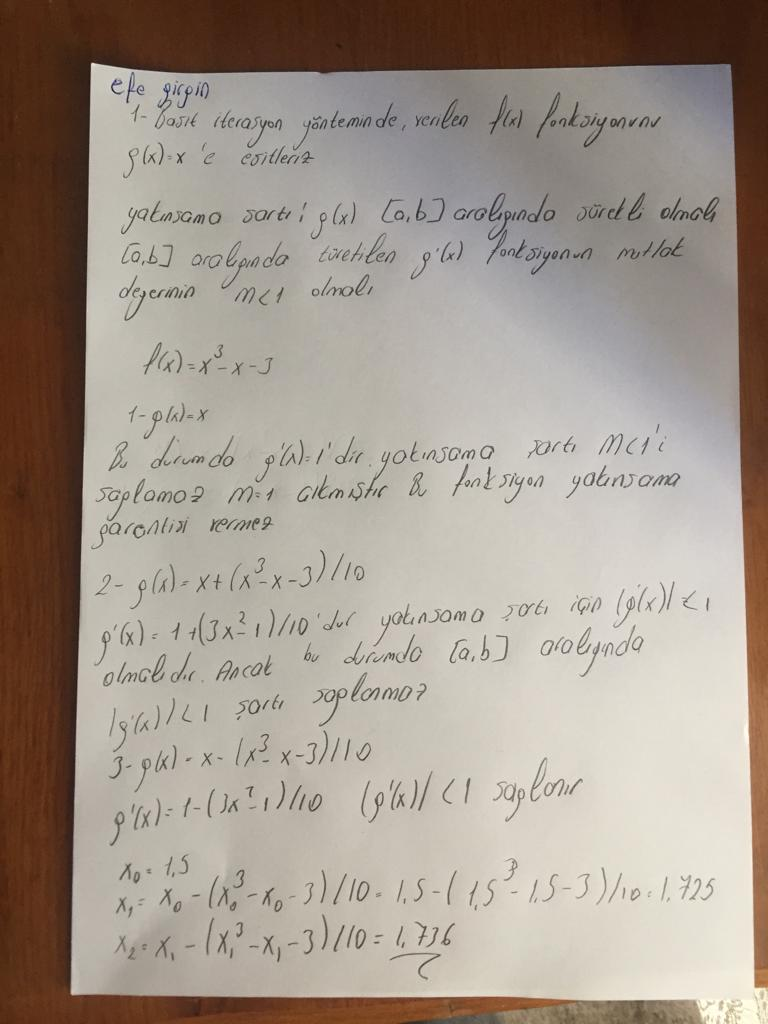 efe girgin
1- Basit iterasyon yönteminde, verilen f(x) fonksiyonunu
g(x)=x 'e eşitleriz
yakınsama şartı; g(x) [a,b] aralığında sürekli olmalı
[a,b] aralığında türetilen g'(x) fonksiyonun mutlak
değerinin M<1 olmalı
f(x)=x³-x-3
1-g(x)=x
Bu durumda g'(x)=1'dir. yakınsama şartı M<1'i
sağlamaz M=1 çıkmıştır Bu fonksiyon yakınsama
garantisi vermez
2- g(x)=x+(x³-x-3)/10
g'(x)=1+(3x²-1)/10'dur yakınsama şartı için |g'(x)|<1
olmalıdır. Ancak bu durumda [a,b] aralığında
|g'(x)|<1 şartı sağlanmaz
3-g(x)=x-(x³-x-3)/10
g'(x)=1-(3x²-1)/10 |g'(x)|<1 sağlanır
x₀=1,5
x₁=x₀-(x₀³-x₀-3)/10=1,5-(1,5³-1,5-3)/10=1,725
x₂=x₁-(x₁³-x₁-3)/10=1,736